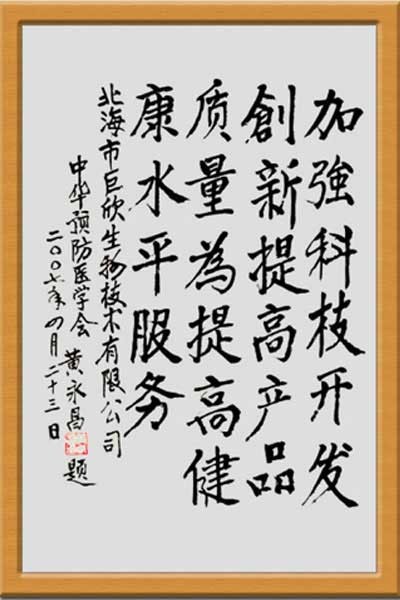 加強科技开发
創新提高产品
质量為提高健
康水平服务
北海市巨欣生物技术有限公司
中华预防医学会 黄永昌 题
二〇〇七年四月二十三日